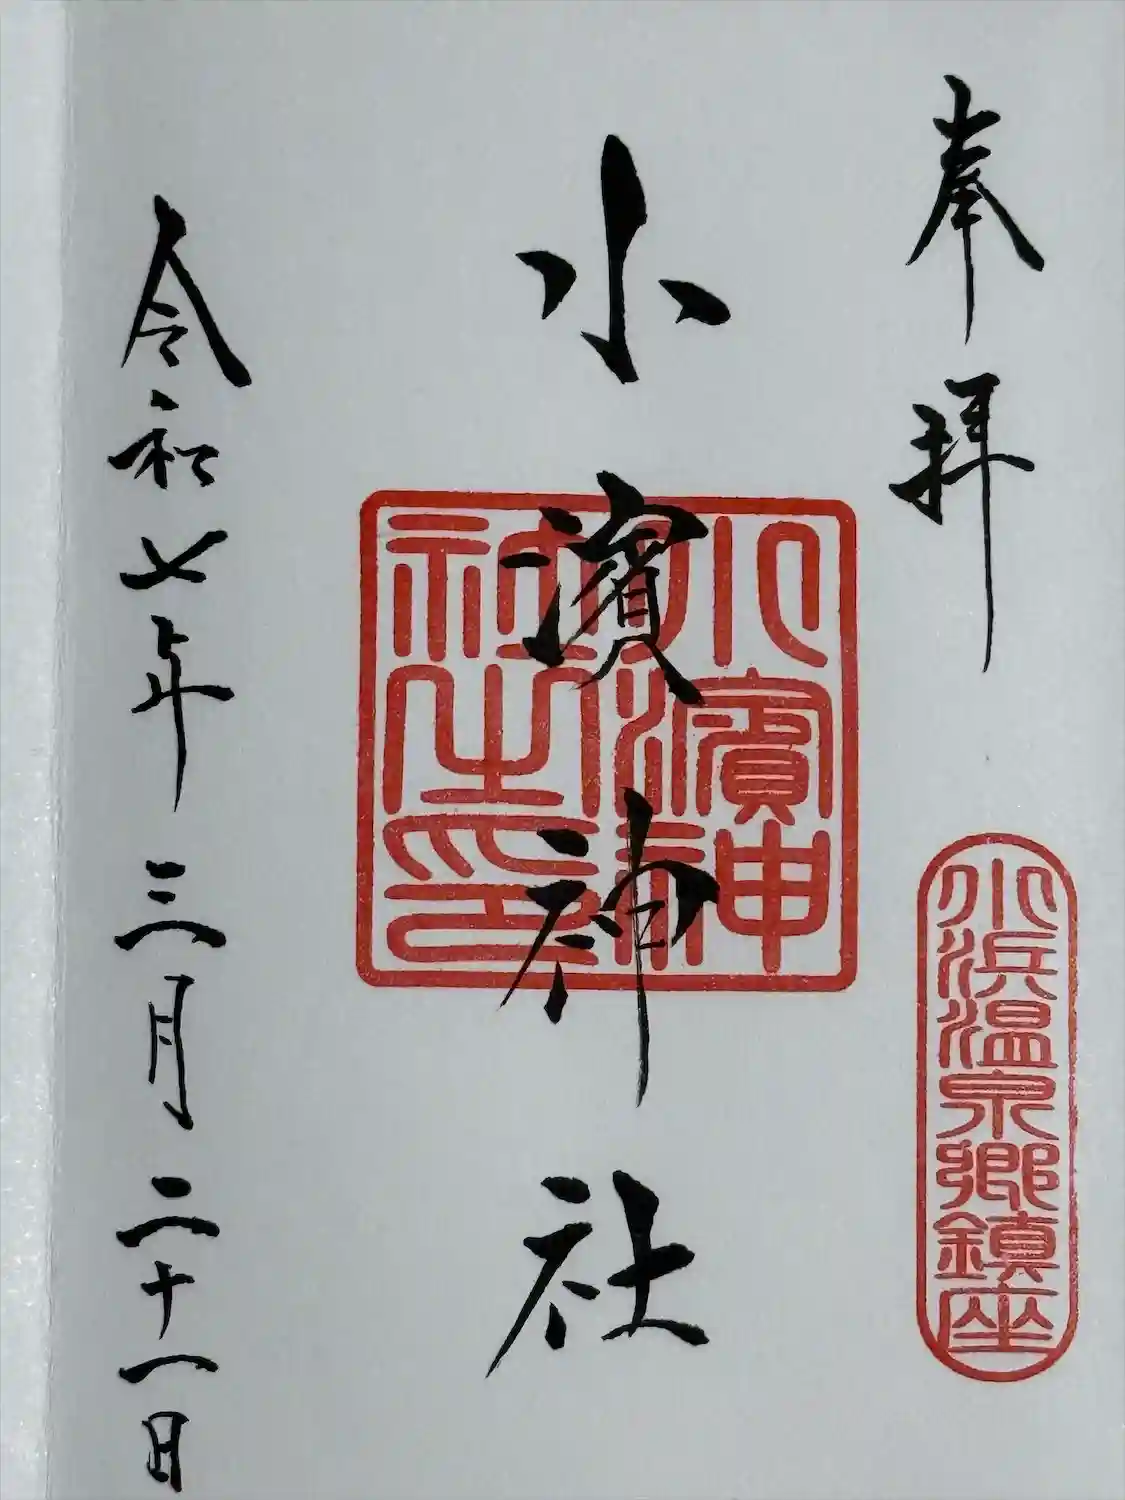 奉拝
小浜温泉郷鎮座
小濱神社
小濱神社之印
令和七年三月二十一日